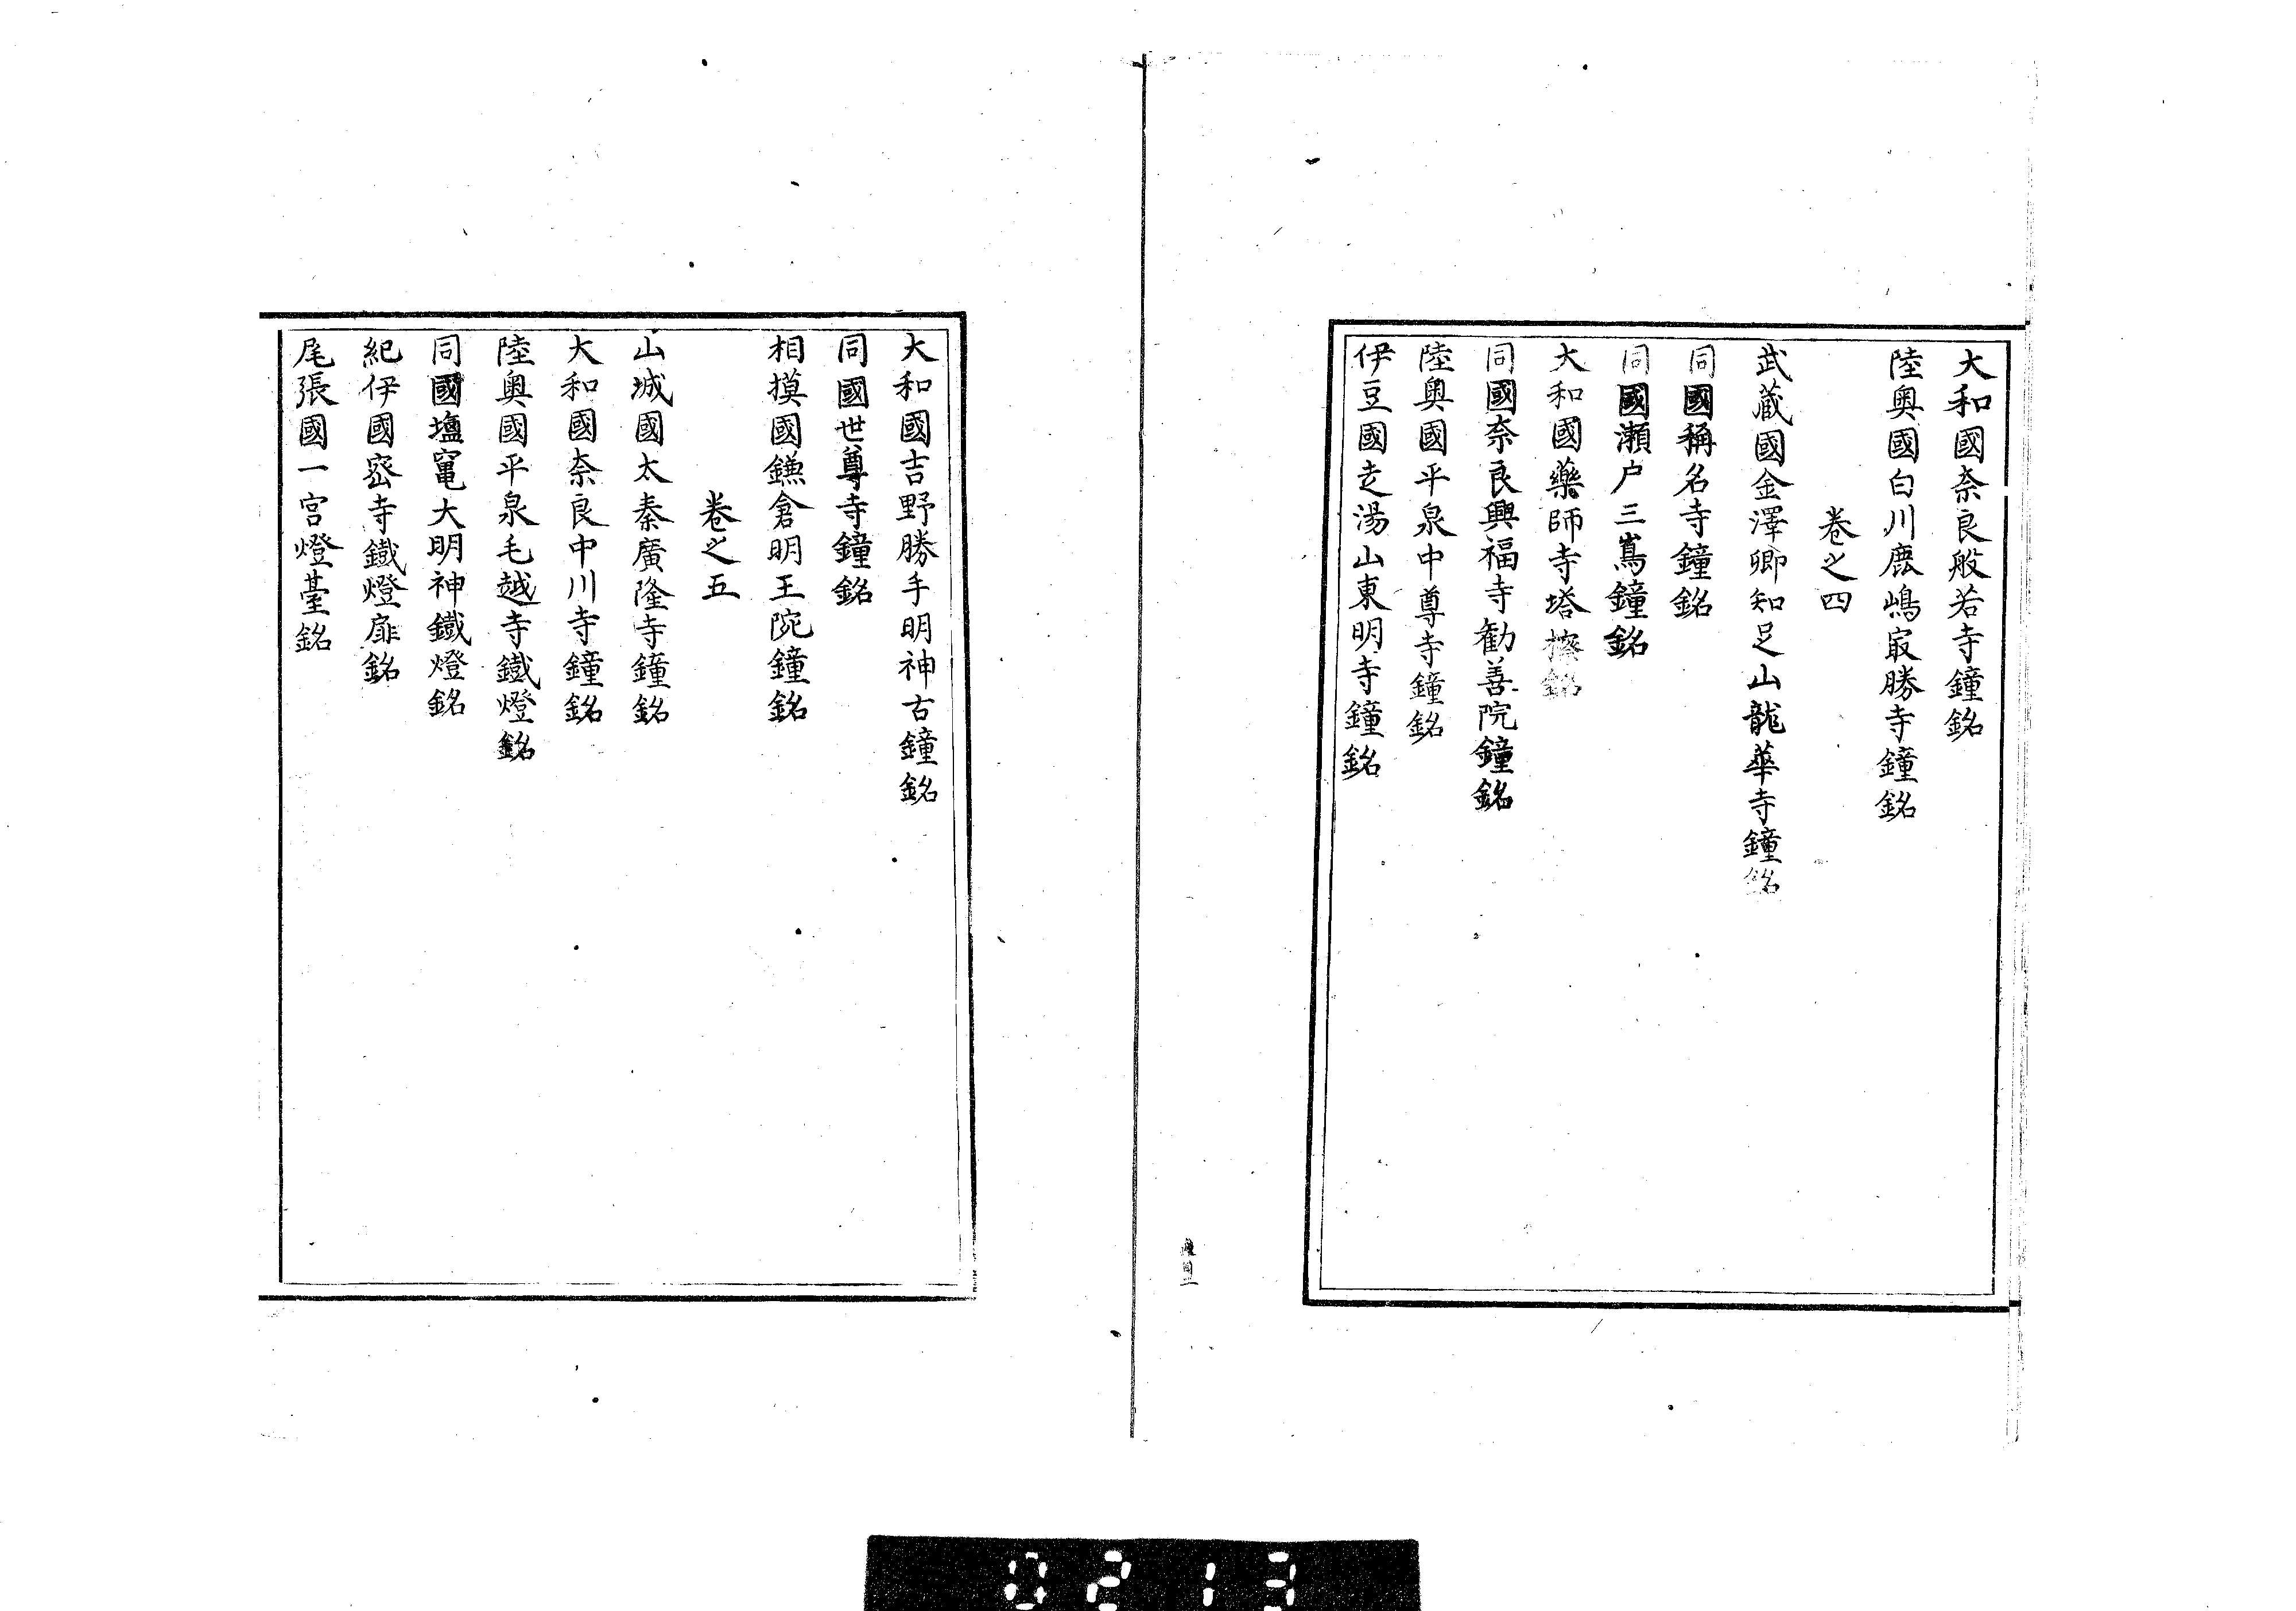 大和國奈良般若寺鐘銘
陸奥國白川鹿嶋㝡勝寺鐘銘
巻之四
武蔵國金澤郷知足山龍華寺鐘銘
同國稱名寺鐘銘
同國瀬户三嶌鐘銘
大和國藥師寺塔擦銘
同國奈良興福寺勧善院鐘銘
陸奥國平泉中尊寺鐘銘
伊豆國走湯山東明寺鐘銘
大和國吉野勝手明神古鐘銘
同國世尊寺鐘銘
相摸國鎌倉明王院鐘銘
巻之五
山城國太秦廣隆寺鐘銘
大和國奈良中川寺鐘銘
陸奥國平泉毛越寺鐵燈銘
同國塩竃大明神鐵燈銘
紀伊國宻寺鐵燈扉銘
尾張國一宮燈臺銘
0213